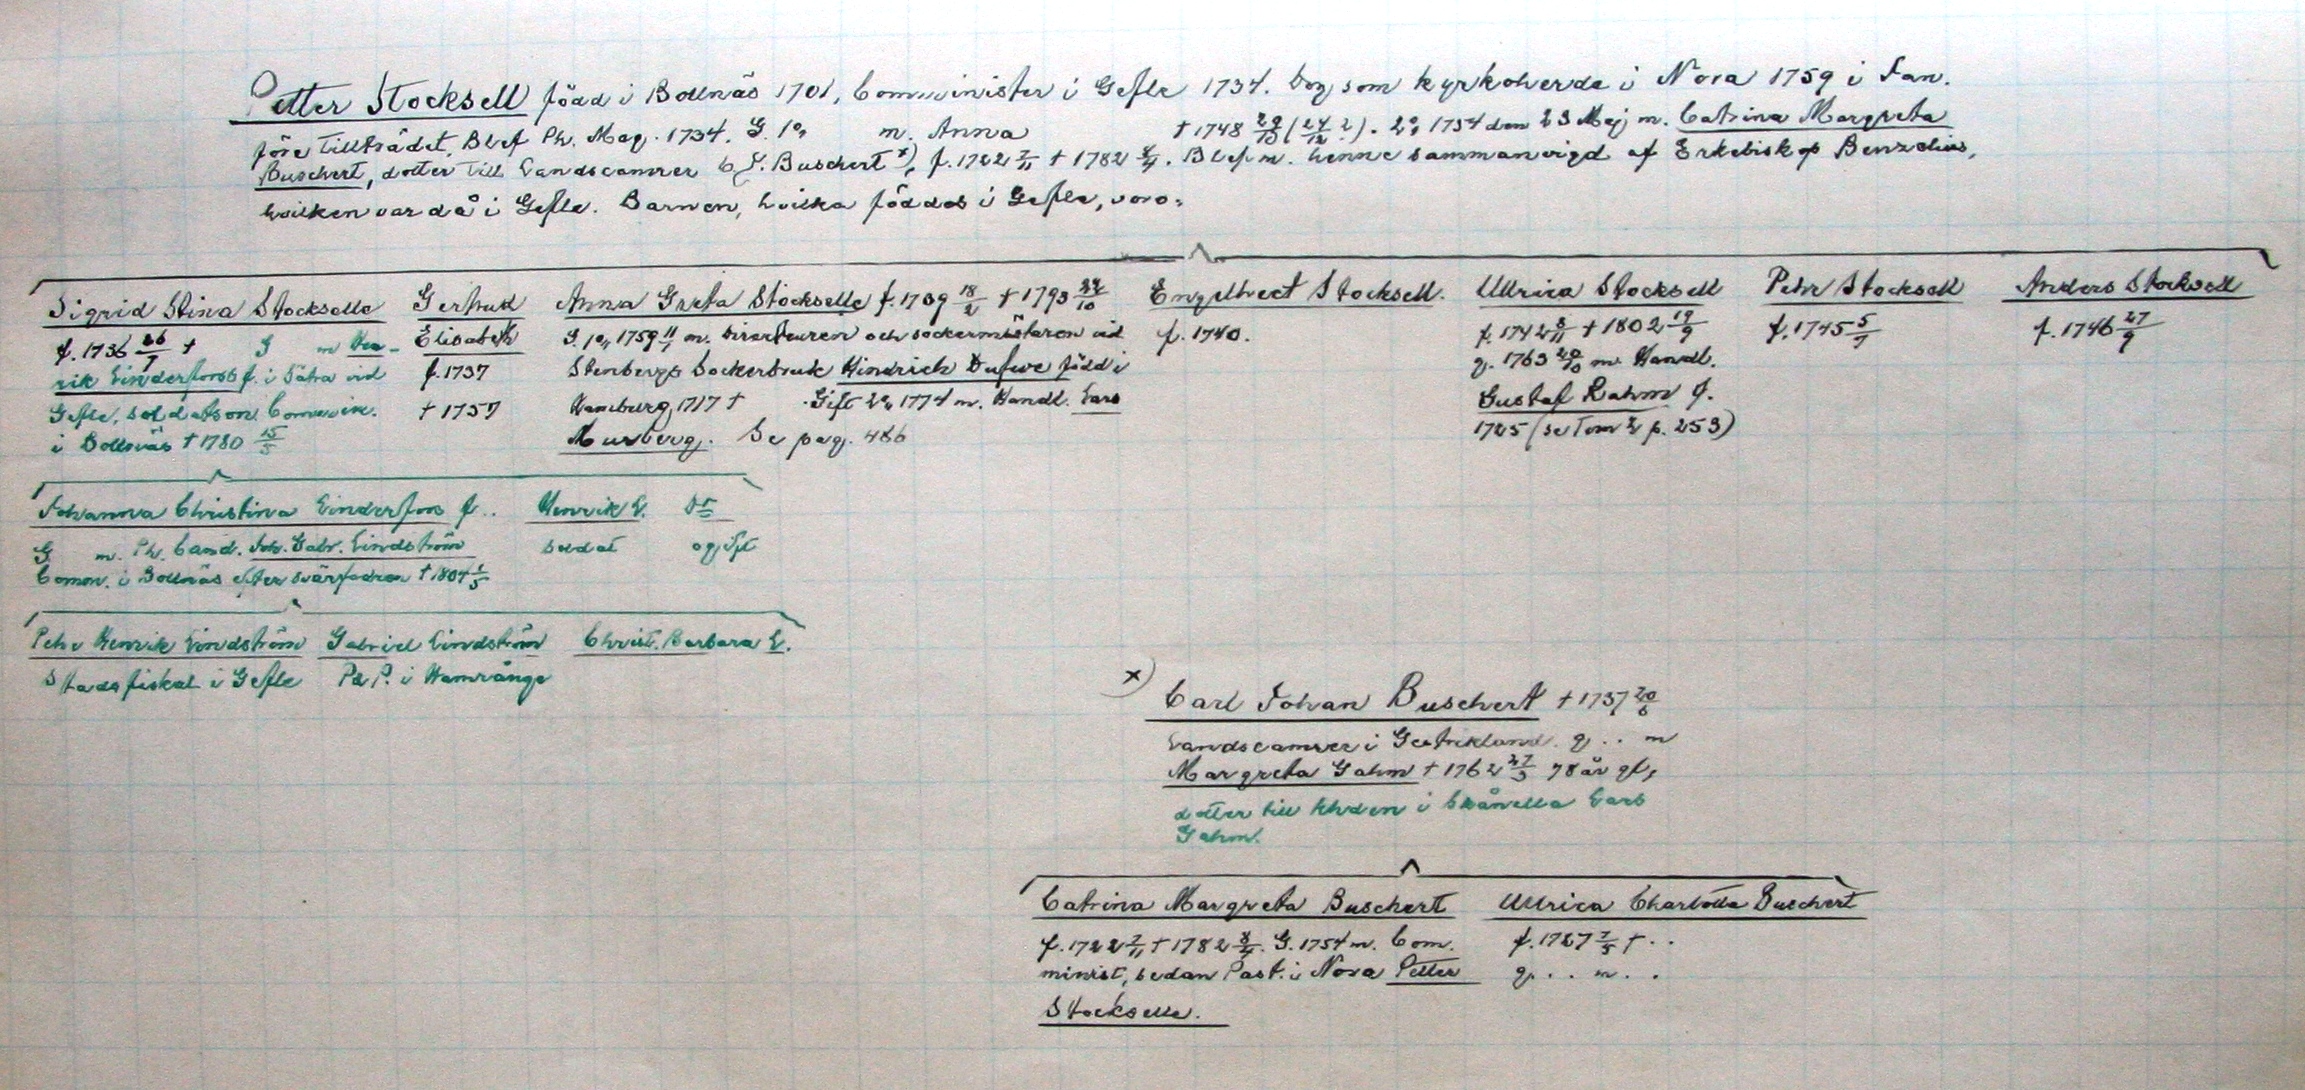 Petter Stocksell född i Bollnäs 1701, Comminister i Gefle 1734. Dog som kyrkoherde i Nora 1759 i Jan.
före tillträdet. Blef Ph. Mag. 1734. G. 1o, m. Anna † 1748 29/10 (24/12 ?). 2o, 1754 den 23 Maj m. Catrina Margreta
Buschert, dotter till Landscamrer C. J. Buschert x), f. 1722 7/11 † 1782 8/4. Blef m. henne sammanvigd af Erkebiskop Benzelius,
hvilken var då i Gefle. Barnen, hvilka föddes i Gefle, voro:
Sigrid Stina Stockselle
f. 1736 26/7 † G m Hen-
rik Linderfors f. i Sätra vid
Gefle, soldatson. Commin.
i Bollnäs † 1780 15/5
Gertrud
Elisabeth
f. 1737
† 1757
Anna Greta Stockselle f. 1739 18/2 † 1793 22/10
G. 1o, 1759 11/1 m. Directeuren och sockermästaren vid
Stenbergs Sockerbruk Hindrich Dufwe född i
Hamburg 1717 † . Gift 2o, 1774 m. Handl. Lars
Murberg. Se pag. 486
Engelbrect Stocksell.
f. 1740.
Ullrica Stocksell
f. 1742 8/11 † 1802 19/9
g. 1763 20/10 m. Handl.
Gustaf Rahm f.
1725 (se Tom 2 p. 253)
Pehr Stocksell
f. 1745 5/7
Anders Stocksell
f. 1746 27/9
Johanna Christina Linderfors f..
G m. Ph. Cand. Joh. Gabr. Lindström
Comm. i Bollnäs efter svärfadren † 1804 1/5
Henrik L.
soldat
Dr
ogift
Pehr Henrik Lindström
Stadsfiskal i Gefle
Gabriel Lindström
Pd P. i Hamrånge
Christ. Barbara L.
x) Carl Johan Buschert † 1737 20/6
Landscamrer i Gestrikland. g . . m
Margreta Gahm † 1762 27/3 78 år gl,
dotter till khden i Skånella Lars
Gahm.
Catrina Margreta Buschert
f. 1722 7/11 † 1782 8/4. G. 1754 m. Com.
minist, sedan Past. i Nora Petter
Stockselle.
Ullrica Charlotta Buschert
f. 1727 7/5 † . .
g . . m . .